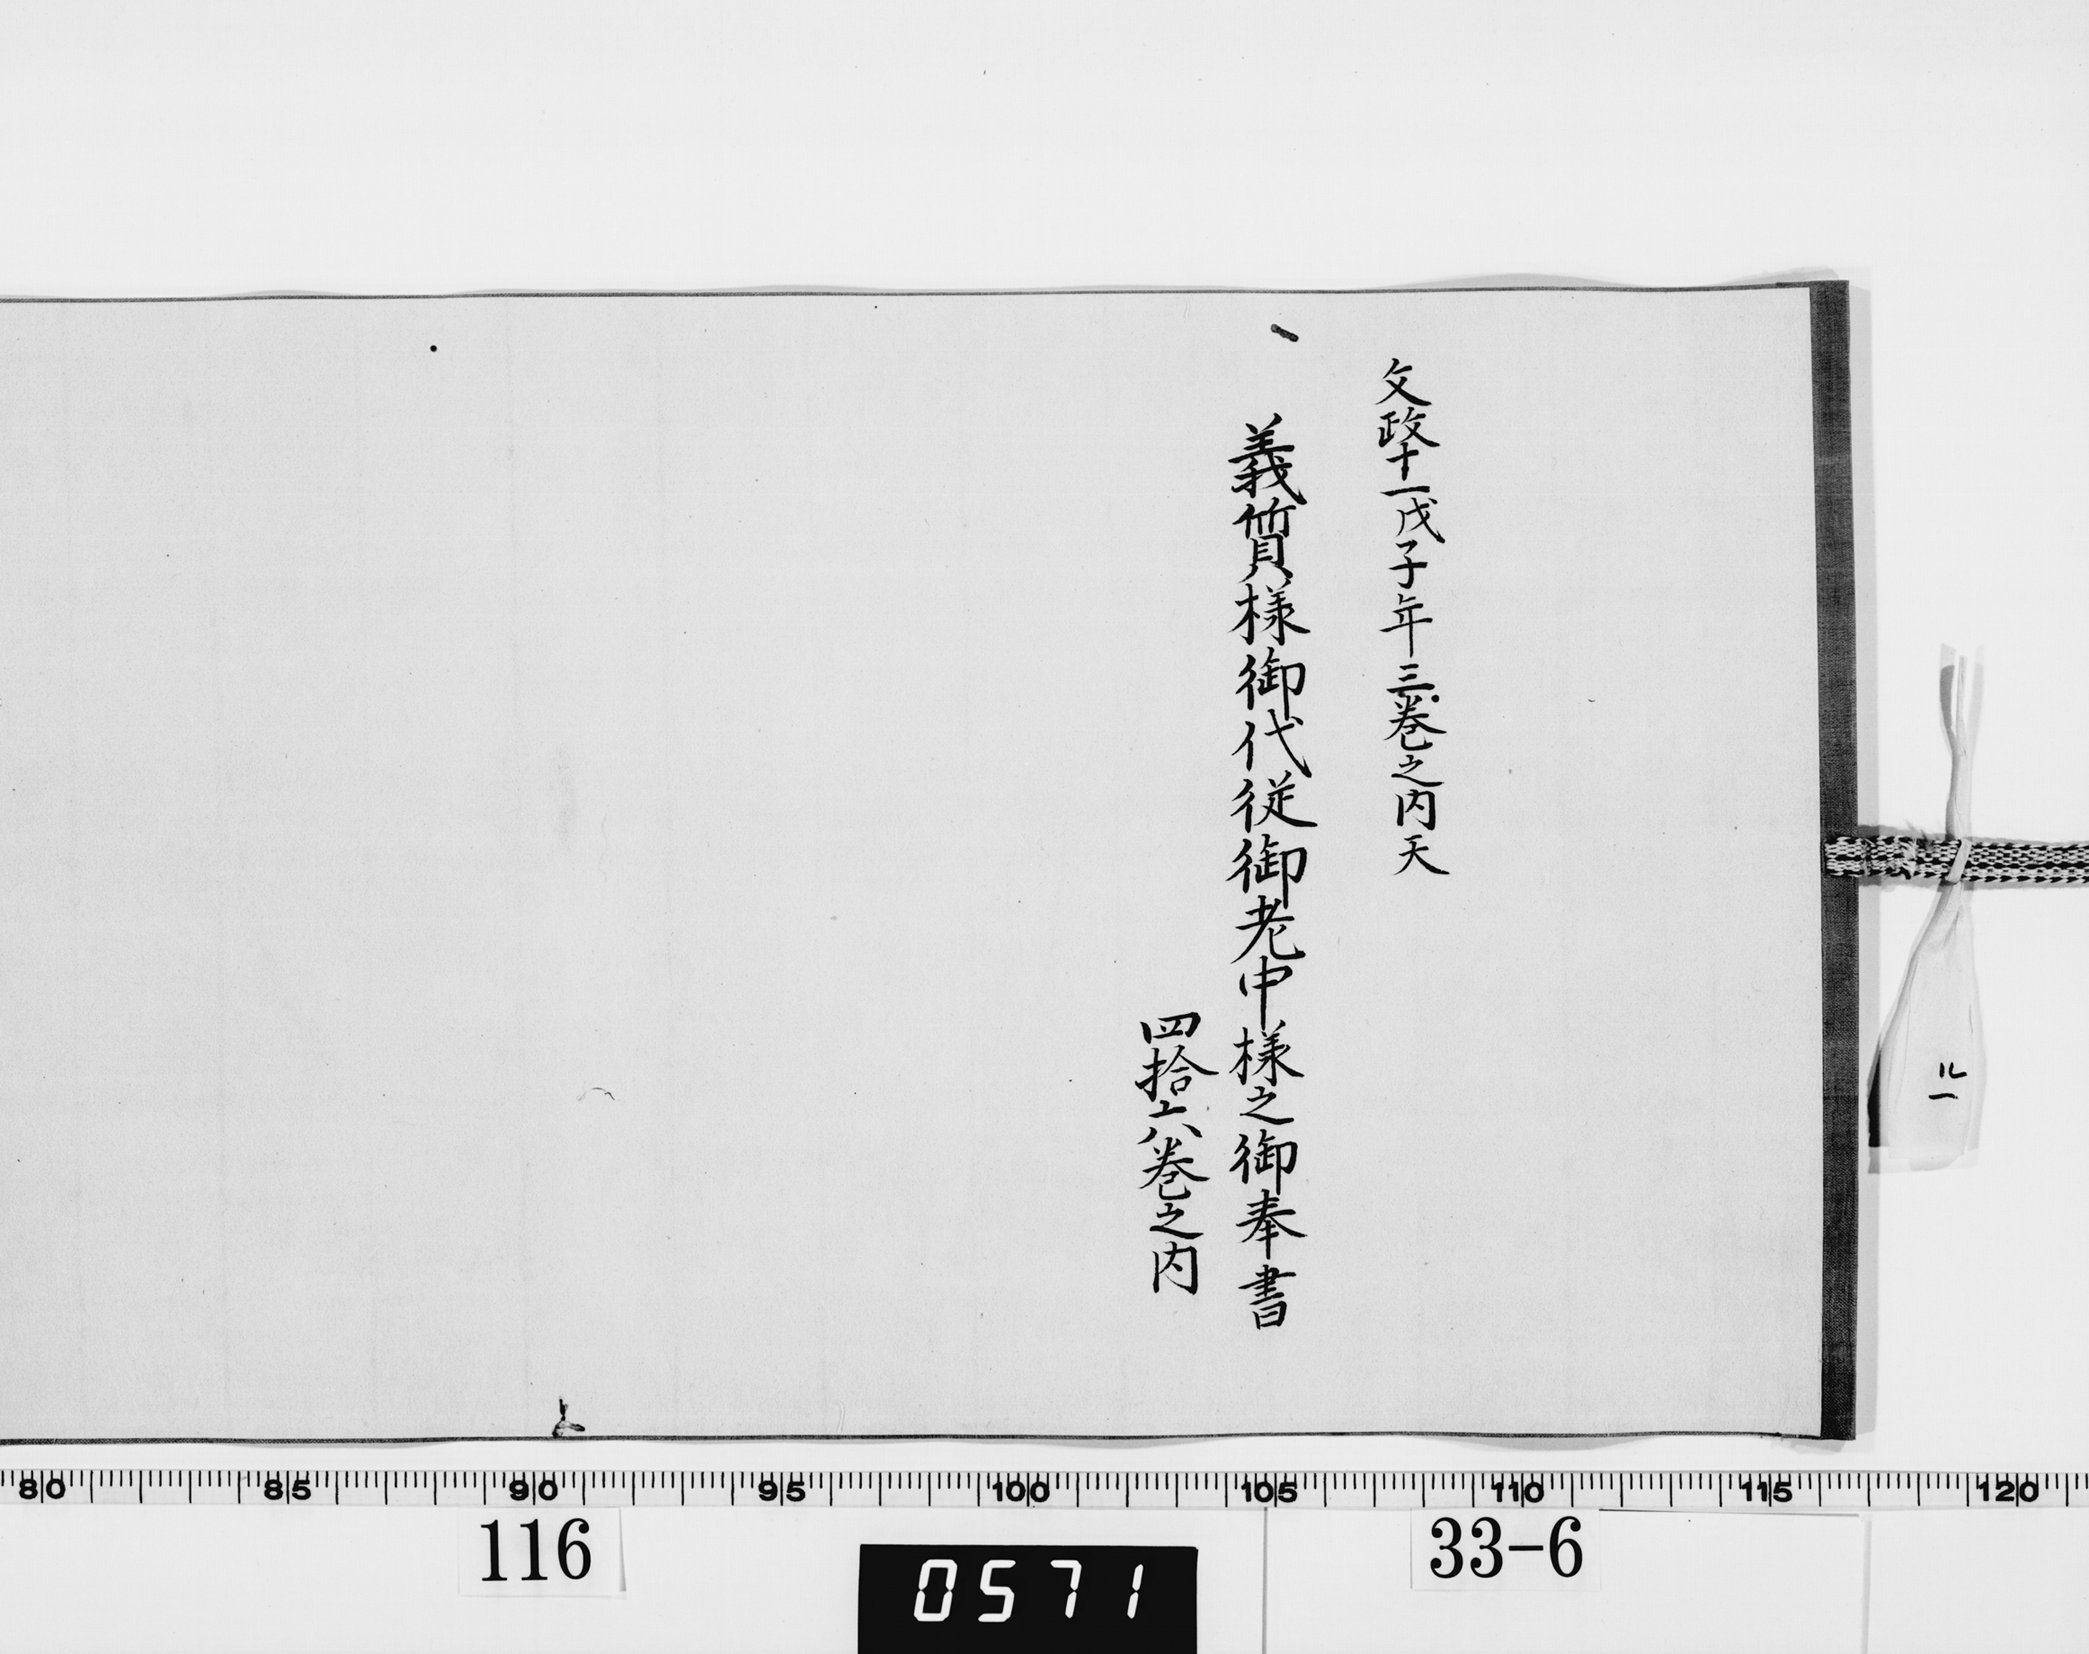 文政十一戊子年三巻之内天
一
義質様御代従御老中様之御奉書
四拾六巻之内
ル一
80 85 90 95 100 105 110 115 120
116
0571
33-6